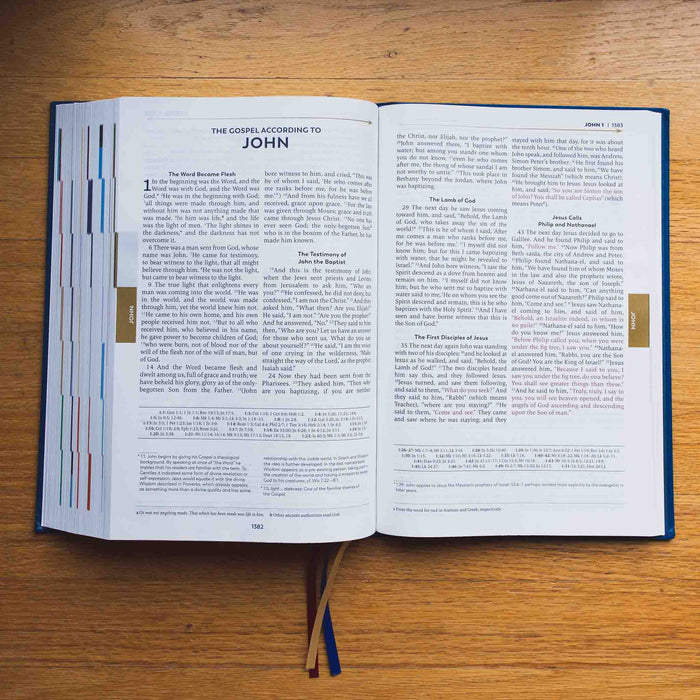 THE GOSPEL ACCORDING TO
JOHN
The Word Became Flesh
1 In the beginning was the Word, and the
Word was with God, and the Word was
God. 2 He was in the beginning with God;
3 all things were made through him, and
without him was not anything made that
was made. 4 In him was life, a and the life
was the light of men. 5 The light shines in
the darkness, and the darkness has not
overcome it.
6 There was a man sent from God, whose
name was John. 7 He came for testimony,
to bear witness to the light, that all might
believe through him. 8 He was not the light,
but came to bear witness to the light.
9 The true light that enlightens every
man was coming into the world. 10 He was
in the world, and the world was made
through him, yet the world knew him not.
11 He came to his own home, and his own
people received him not. 12 But to all who
received him, who believed in his name,
he gave power to become children of God;
13 who were born, not of blood nor of the
will of the flesh nor of the will of man, but
of God.
14 And the Word became flesh and
dwelt among us, full of grace and truth; we
have beheld his glory, glory as of the only-
begotten Son from the Father. 15 (John
bore witness to him, and cried, "This was
he of whom I said, 'He who comes after
me ranks before me, for he was before
me.'") 16 And from his fulness have we all
received, grace upon grace. 17 For the law
was given through Moses; grace and truth
came through Jesus Christ. 18 No one has
ever seen God; the only-begotten Son, b
who is in the bosom of the Father, he has
made him known.
The Testimony of
John the Baptist
19 And this is the testimony of John,
when the Jews sent priests and Levites
from Jerusalem to ask him, "Who are
you?" 20 He confessed, he did not deny, but
confessed, "I am not the Christ." 21 And they
asked him, "What then? Are you Elijah?"
He said, "I am not." "Are you the prophet?"
And he answered, "No." 22 They said to him
then, "Who are you? Let us have an answer
for those who sent us. What do you say
about yourself?" 23 He said, "I am the voice
of one crying in the wilderness, 'Make
straight the way of the Lord,' as the prophet
Isaiah said."
24 Now they had been sent from the
Pharisees. 25 They asked him, "Then why
are you baptizing, if you are neither
* 1:1, John begins by giving his Gospel a theological
background. By speaking at once of "the Word" he
implies that his readers are familiar with the term. To
Gentiles it indicated some form of divine revelation or
self-expression. Jews would equate it with the divine
Wisdom described in Proverbs, which already appears
as something more than a divine quality and has some
relationship with the visible world. In Sirach and Wisdom
the idea is further developed. In the last-named book,
Wisdom appears as a pre-existing person, taking part in
the creation of the world and having a mission to reveal
God to his creatures, cf. Wis 7:22—8:1.
the Gospel.
a Or was not anything made. That which has been made was life in him.
b Other ancient authorities read God.
1382
JOHN
JOHN 1 | 1383
the Christ, nor Elijah, nor the prophet?"
26 John answered them, "I baptize with
water; but among you stands one whom
you do not know, 27 even he who comes
after me, the thong of whose sandal I am
not worthy to untie." 28 This took place in
Bethany beyond the Jordan, where John
was baptizing.
The Lamb of God
29 The next day he saw Jesus coming
toward him, and said, "Behold, the Lamb
of God, who takes away the sin of the
world! 30 This is he of whom I said, 'After
me comes a man who ranks before me,
for he was before me.' 31 I myself did not
know him; but for this I came baptizing
with water, that he might be revealed to
Israel." 32 And John bore witness, "I saw the
Spirit descend as a dove from heaven and
remain on him. 33 I myself did not know
him; but he who sent me to baptize with
water said to me, 'He on whom you see the
Spirit descend and remain, this is he who
baptizes with the Holy Spirit.' 34 And I have
seen and have borne witness that this is
the Son of God."
The First Disciples of Jesus
35 The next day again John was standing
with two of his disciples; 36 and he looked at
Jesus as he walked, and said, "Behold, the
Lamb of God!" 37 The two disciples heard
him say this, and they followed Jesus.
38 Jesus turned, and saw them following,
and said to them, "What do you seek?" And
they said to him, "Rabbi" (which means
Teacher), "where are you staying?" 39 He
said to them, "Come and see." They came
and saw where he was staying; and they
stayed with him that day, for it was about
the tenth hour. 40 One of the two who heard
John speak, and followed him, was Andrew,
Simon Peter's brother. 41 He first found his
brother Simon, and said to him, "We have
found the Messiah" (which means Christ).
42 He brought him to Jesus. Jesus looked at
him, and said, "So you are Simon the son
of John? You shall be called Cephas" (which
means Peter c).
Jesus Calls
Philip and Nathanael
43 The next day Jesus decided to go to
Galilee. And he found Philip and said to
him, "Follow me." 44 Now Philip was from
Beth-saida, the city of Andrew and Peter.
45 Philip found Nathana-el, and said to
him, "We have found him of whom Moses
in the law and also the prophets wrote,
Jesus of Nazareth, the son of Joseph."
46 Nathana-el said to him, "Can anything
good come out of Nazareth?" Philip said to
him, "Come and see." 47 Jesus saw Nathana-
el coming to him, and said of him,
"Behold, an Israelite indeed, in whom is
no guile!" 48 Nathana-el said to him, "How
do you know me?" Jesus answered him,
"Before Philip called you, when you were
under the fig tree, I saw you." 49 Nathana-
el answered him, "Rabbi, you are the Son
of God! You are the King of Israel!" 50 Jesus
answered him, "Because I said to you, I
saw you under the fig tree, do you believe?
You shall see greater things than these."
51 And he said to him, "Truly, truly, I say to
you, you will see heaven opened, and the
angels of God ascending and descending
upon the Son of man."
* 1:29, John applies to Jesus the Messianic prophecy of Isaiah 52-
later years.
c From the word for rock in Aramaic and Greek, respectively.
JOHN